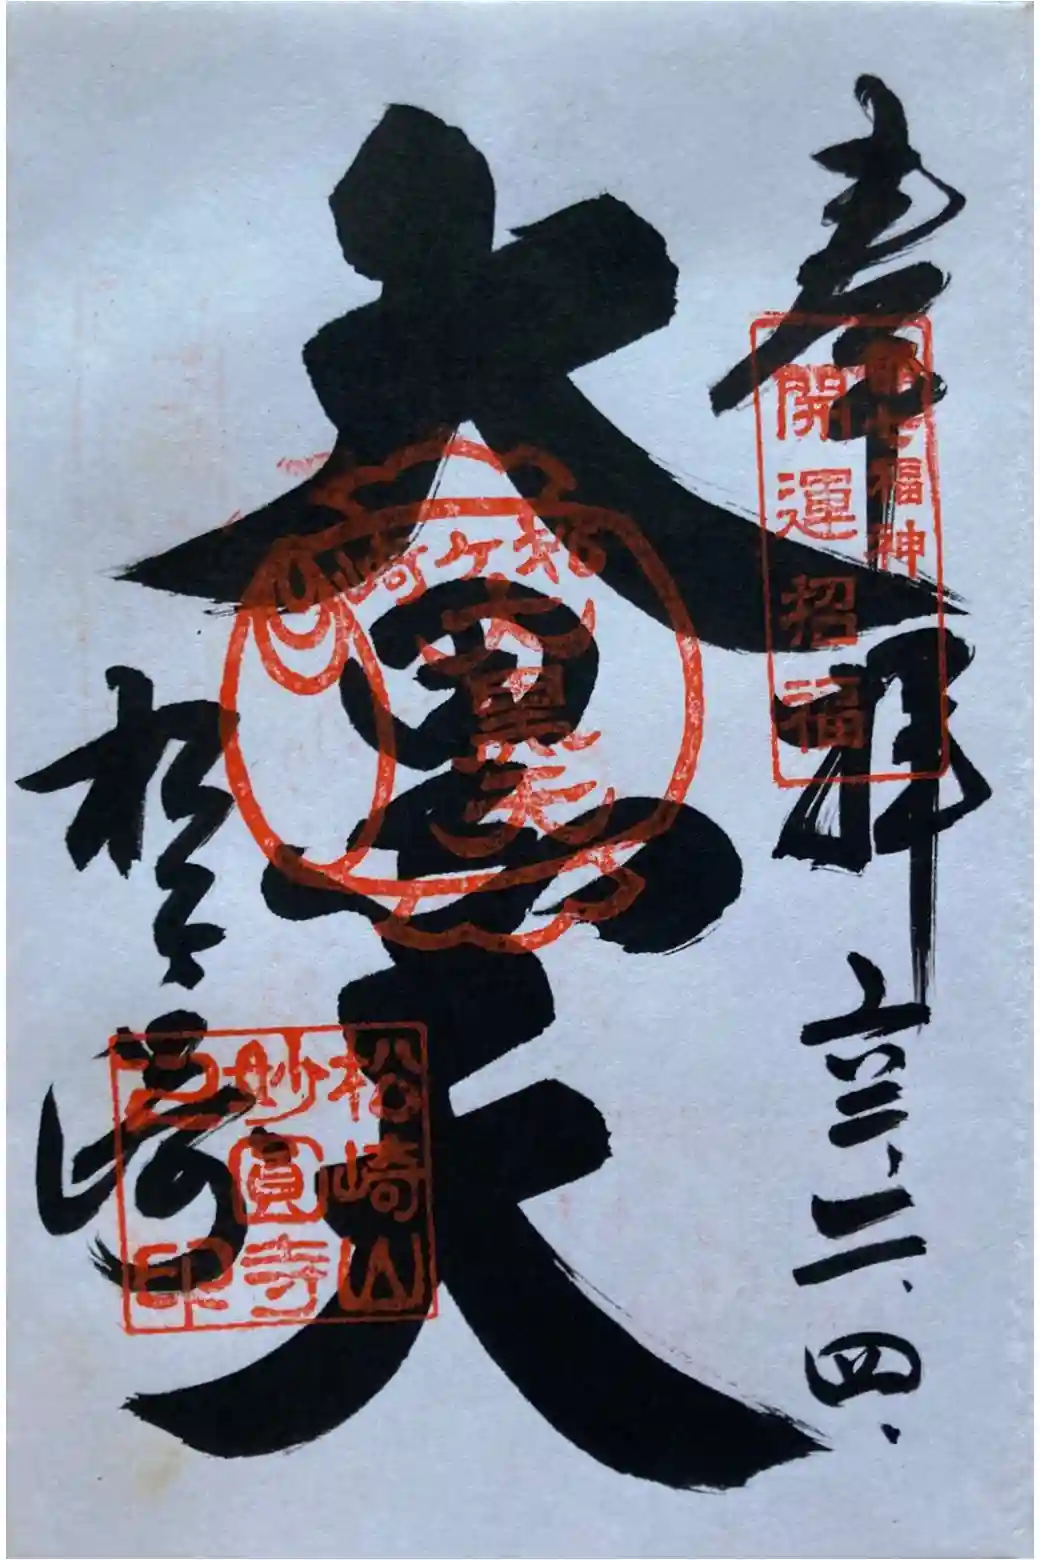 奉拝 六三、二、四、
都七福神
開運招福
大黒天
松ヶ崎
大黒天
松ヶ崎
松崎山
妙圓寺
之印